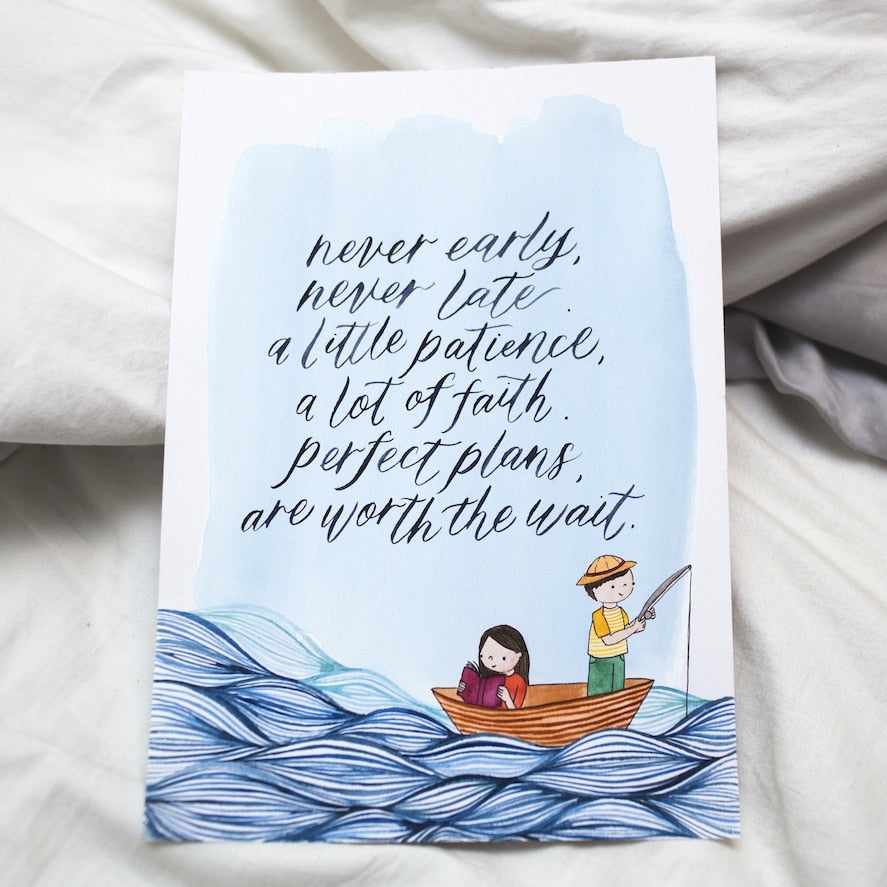 never early,
never late.
a little patience,
a lot of faith.
perfect plans,
are worth the wait.